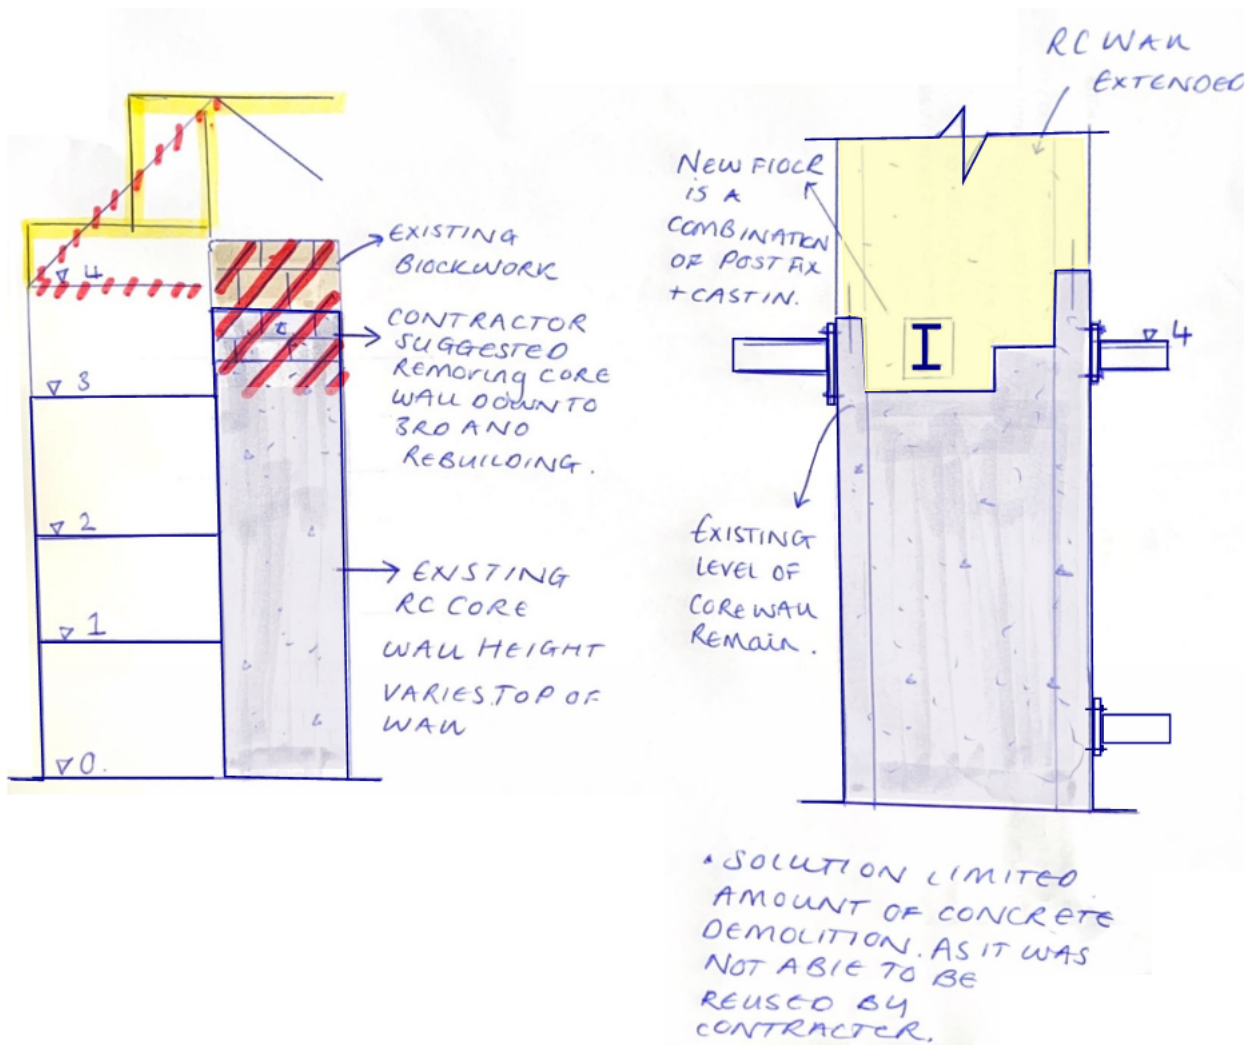 EXISTING
BLOCKWORK
▽ 4
CONTRACTOR
SUGGESTED
REMOVING CORE
WALL DOWN TO
3RD AND
REBUILDING.
▽ 3
▽ 2
EXISTING
RC CORE
WALL HEIGHT
VARIES. TOP OF
WALL
▽ 1
▽ 0.
RC WALL
EXTENDED
NEW FLOOR
IS A
COMBINATION
OF POST FIX
+ CAST IN.
I
▽ 4
EXISTING
LEVEL OF
CORE WALL
REMAIN.
• SOLUTION LIMITED
AMOUNT OF CONCRETE
DEMOLITION. AS IT WAS
NOT ABLE TO BE
REUSED BY
CONTRACTER.